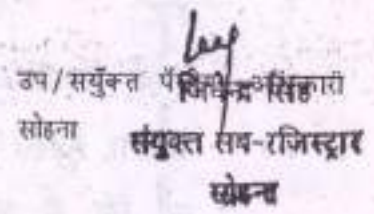 उप/सयुँक्त पँजीयन अधिकारी
जितेन्द्र सिंह
सोहना
संयुक्त सब-रजिस्ट्रार
सोहना